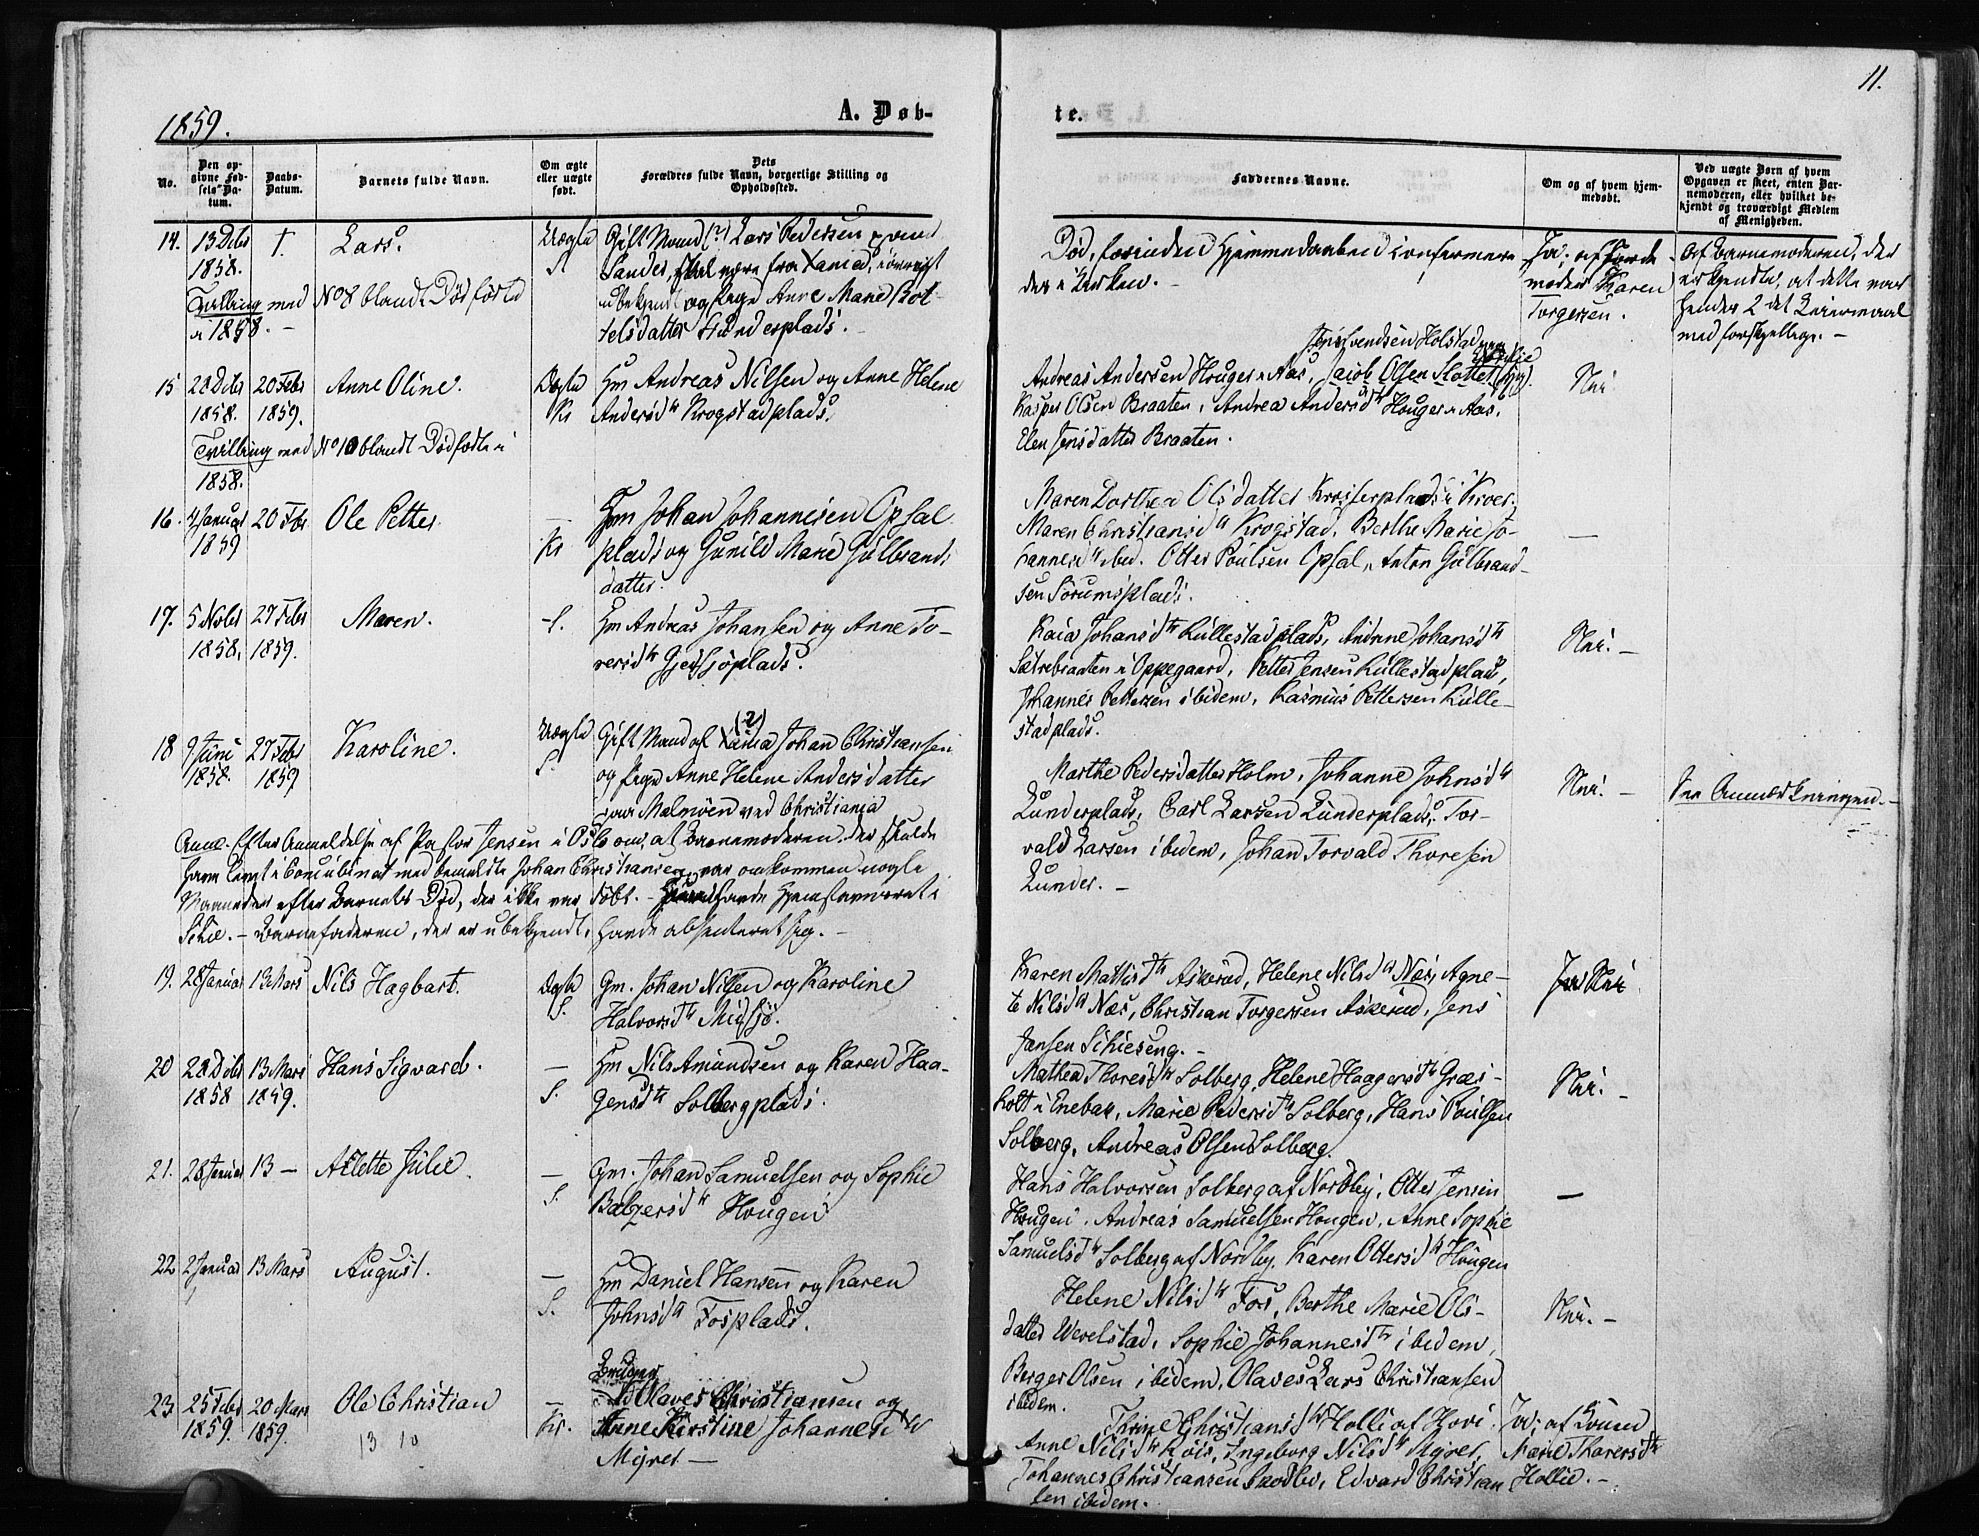 11.
1859.
A. Døb-
te.
No.
Den op-
givne Fød-
sels-Da-
tum.
Daabs-
Datum.
Barnets fulde Navn.
Om ægte
eller uægte
født.
Dets
Forældres fulde Navn, borgerlige Stilling og
Opholdssted.
Faddernes Navne.
Om og af hvem hjem-
medøbt.
Ved uægte Børn af hvem
Opgaven er skeet, enten Bar-
nemoderen, eller hvilket be-
kjendt og troværdigt Medlem
af Menigheden.
14. 13 Decbr
1858.
Tvilling med No 8 blandt Dødfødte
i 1858. -
†. Lars.
Uægte
Gift Mand (?) Lars Pedersen
Sander, skal være fra Xania, iøvrigt
ubekjendt og Pige Anne Marie Bot-
telsdatter Sunderplads. -
Død, forinden Hjemmedaaben confirmere-
des i Kirken. -
Ja; af Jorde-
moder Karen
Torgersen.
Af Barnemoderen, der
erkjendte, at dette var
hendes 2det Leiermaal
med forskjellige. -
15 22 Decbr
1858.
Tvilling med No 10 blandt Dødfødte i
1858.
20 Febr
1859.
Anne Oline.
Ægte
Kr
Gm Andreas Nilsen og Anne Helene
Andersdtr Krogstadplads.
Jens Svendsen Holstad
Andreas Andersen Houger i Aas, Jacob Olsen Slottet
Kasper Olsen Braaten, Andrea Andersdtr Houger i Aas,
Elen Jensdatter Braaten.
Nei
16. 4 Januar
1859
20 Febr
Ole Petter.
—
Kr
Gm Johan Johannesen Opsal-
plads og Gunild Marie Gulbrands-
datter.
Maren Dorthea Olsdatter Kroiserplads i Kroer,
Maren Christiansdtr Krogstad, Berthe Marie Jo-
hannesdtr ibid. Otter Poulsen Opsal, Anton Gulbrand-
sen Sørumsplads.
—
17. 5 Novbr
1858.
27 Febr
1859.
Maren.
-S.
Gm Andreas Johansen og Anne To-
resdtr Gjedsjøplads.
Kaia Johansdtr Kullestadplads, Andrine Johansdtr
Sætrebraaten i Oppegaard, Petter Jensen Kullestadplads,
Johannes Pettersen ibidem, Rasmus Pettersen Kulle-
stadplads.
Nei. -
18 9 Juni
1858.
27 Febr
1859
Karoline.
Uægte
S.
Gift Mand af Xania (?) Johan Christiansen
og Pige Anne Helene Andersdatter
paa Malmøen ved Christiania
Marthe Pedersdatter Holm, Johanne Johnsdtr
Lunderplads, Carl Larsen Lunderplads, Tor-
vald Larsen ibidem, Johan Torvald Thoresen
Lunder. -
Nei. -
See Anmærkningen. -
Anm. Efter Anmeldelse af Pastor Jensen i Oslo om, at Barnemoderen, der skulde
have levet i Concubinat med bemeldte Johan Christiansen, var omkommen nogle
Maaneder efter Barnets Død, der ikke var døbt. - havde Hjemstavnsret i
Skie. - Barnefaderen, der er ubekjendt, havde absenteret sig. -
19. 28 Januar
13 Mars
Nils Hagbart.
Ægte
S.
Gm. Johan Nilsen og Karoline
Halvorsdtr Midsjø.
Karen Mathisdtr Askerud, Helene Nilsdtr Næs, Agne-
te Nilsdtr Næs, Christian Torgersen Askerud, Jens
Jansen Schieseng. -
Ja Nei
20 22 Decbr
1858
13 Mars
1859.
Hans Sigvard.
—
S.
Gm Nils Amundsen og Karen Haa-
gensdtr Solbergplads.
Mathea Thoresdtr Solberg, Helene Haagensdtr Græs-
holt i Enebak, Marie Pedersdtr Solberg, Hans Poulsen
Solberg, Andreas Olsen Solberg.
Nei. -
21. 28 Januar
13 —
Alette Julie.
—
S.
Gm. Johan Samuelsen og Sophie
Balzersdtr Hougen
Hans Halvorsen Solberg af Nordby, Otter Jensen
Hougen, Andreas Samuelsen Hougen, Anne Sophie
Samuelsdtr Solberg af Nordby, Karen Ottersdtr Hougen
—
22. 2 Januar
13 Mars
August.
—
S.
Gm Daniel Hansen og Karen
Johnsdtr Fosplads.
Helene Nilsdtr Fos, Berthe Marie Ols-
datter Wevelstad, Sophie Johannesdtr ibidem,
Berger Olsen ibidem, Olaves Lars Christiansen
ibidem.
Nei. -
23 25 Febr
1859.
20 Mars
1859.
Ole Christian
13 10
—
Kr.
Olaves Christiansen og
Anne Kirstine Johannesdtr
Myret —
Thrine Christiansdtr Holli af Hovi.
Anne Nilsdtr Kols, Ingeborg Nilsdtr Myret,
Johannes Christiansen Skodbo, Edvard Christian-
sen ibidem.
Ja; af Svend
Marie Tharersdtr
Hollie. -